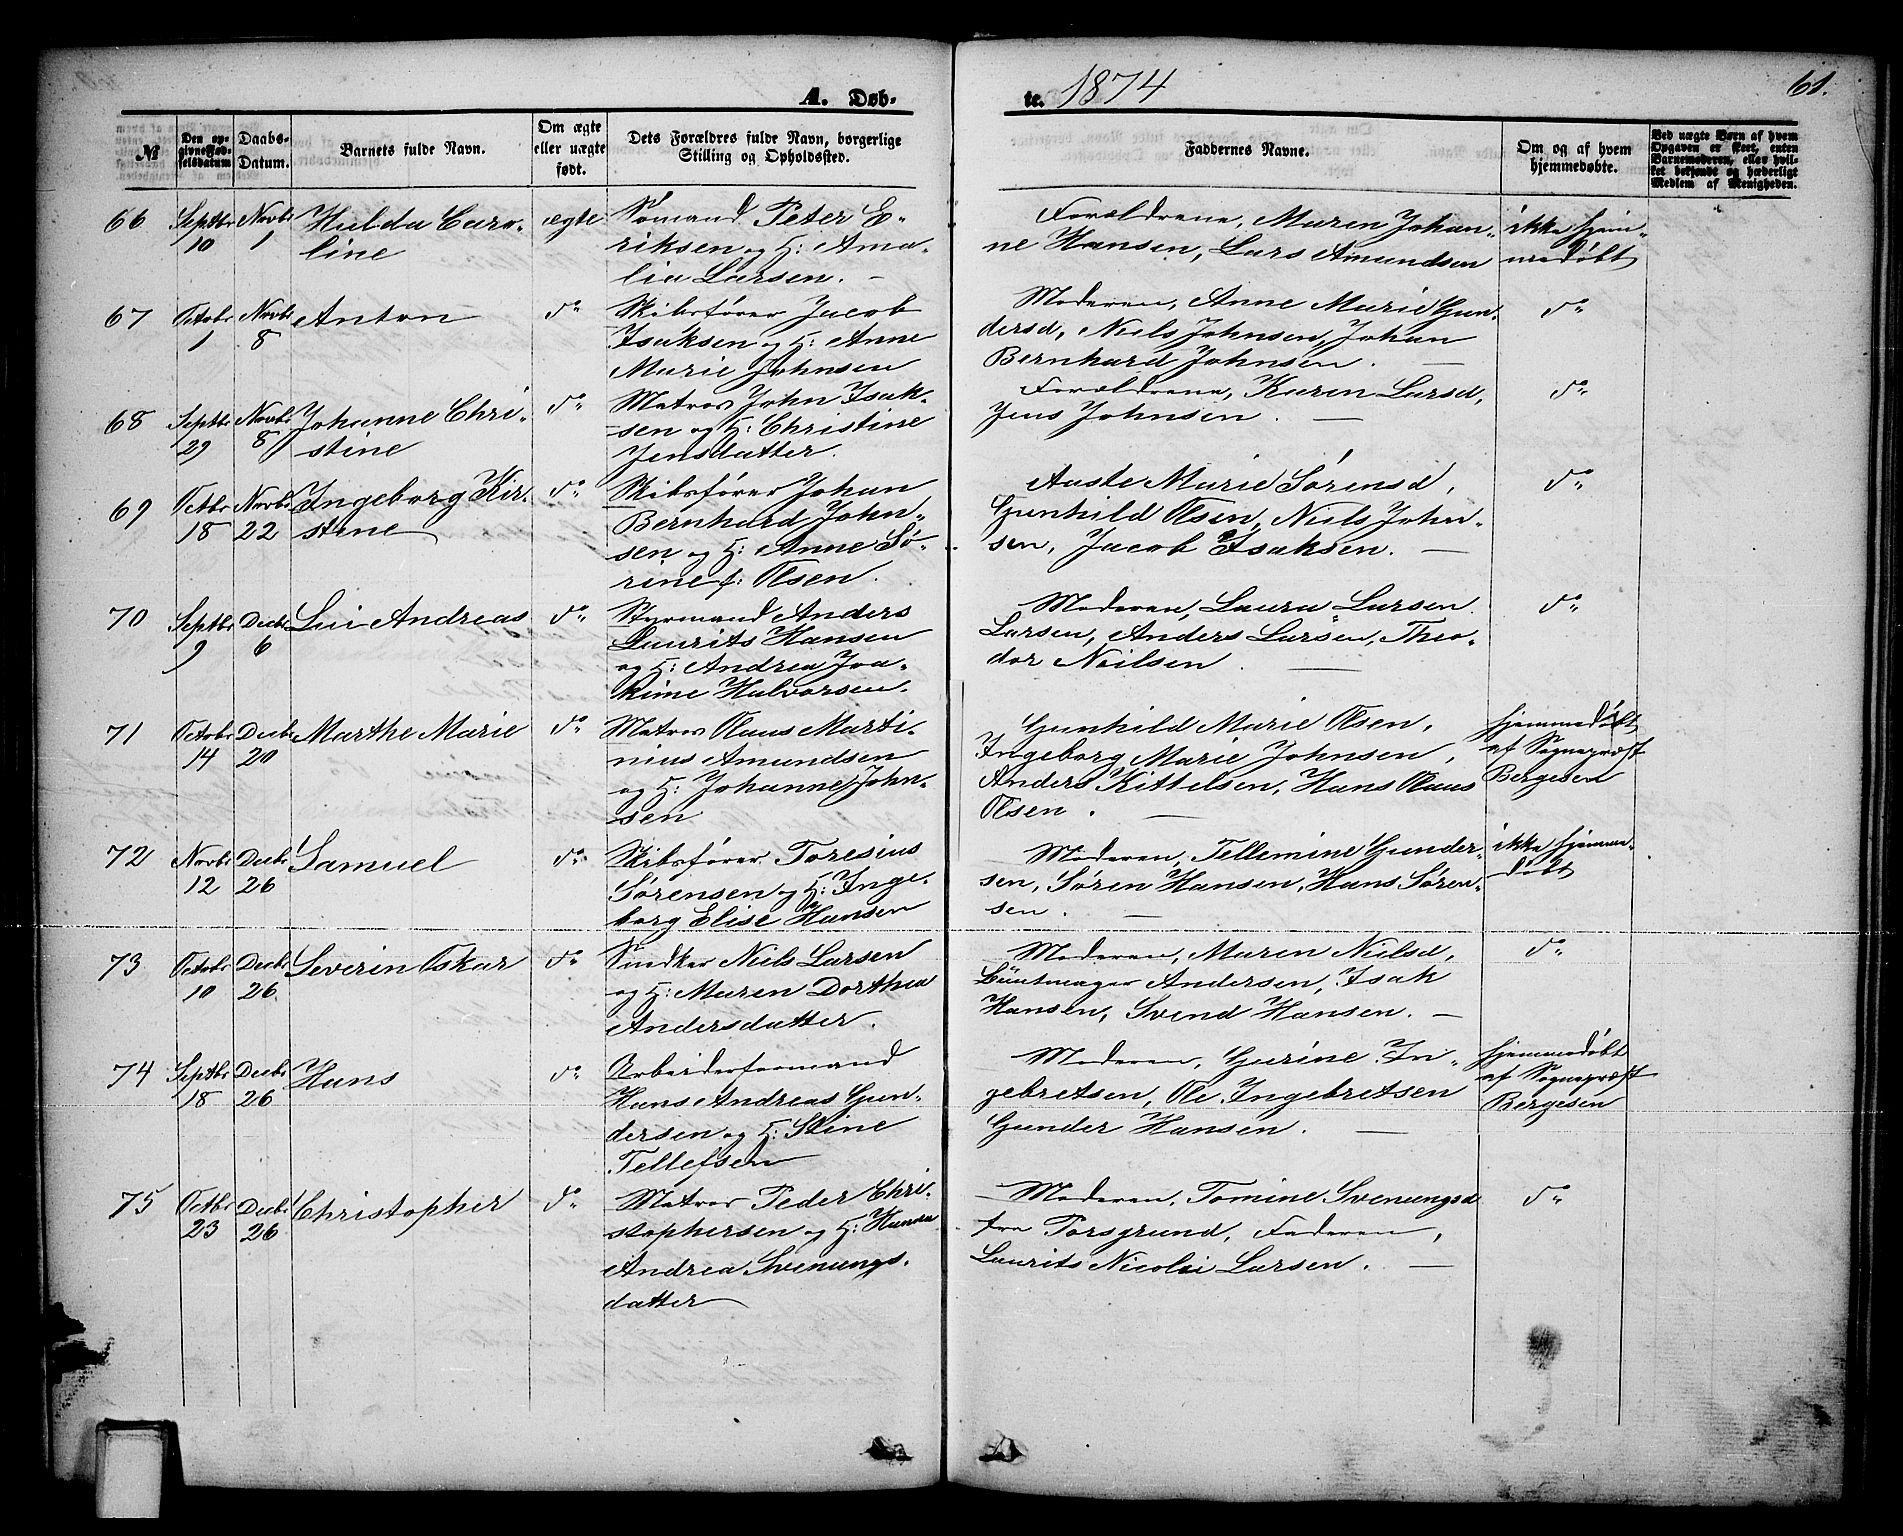 A. Døb-
te. 1874
61.
№
Den opgivne Fødselsdatum
Daabs-Datum.
Barnets fulde Navn.
Om ægte eller uægte født.
Dets Forældres fulde Navn, borgerlige
Stilling og Opholdssted.
Faddernes Navne.
Om og af hvem
hjemmedøbte.
Ved uægte Børn af hvem
Opgaven er skeet, enten
Barnemoderen, eller hvil-
ket bekjendt og hæderligt
Medlem af Menigheden.
66 Septbr 10 Novbr 1 Hulda Caro-
line
ægte
Sømand Peter E-
riksen og H: Ama-
lia Larsen. -
Forældrene, Maren Johan-
ne Hansen, Lars Amundsen
ikke hjem-
medøbt
67 Octobr 1 Novbr 8 Anton do
Skibsfører Jacob
Isaksen og H: Anne
Marie Johnsen
Moderen, Anne Marie Gun-
dersd, Niels Johnsen, Johan
Bernhard Johnsen. -
do
68 Septbr 29 Novbr 8 Johanne Chri-
stine
do
Matros John Isak-
sen og H: Christine
Jensdatter.
Forældrene, Karen Larsd,
Jens Johnsen. -
do
69 Octbr 18 Novbr 22 Ingeborg Kir-
stine
do
Skibsfører Johan
Bernhard John-
sen og H: Anne Sø-
rine f: Olsen.
Aaste Marie Sørensd,
Gunhild Olsen, Niels John-
sen, Jacob Isaksen. -
do
70 Septbr 9 Decbr 6 Lui Andreas do
Styrmand Anders
Laurits Hansen
og H: Andrea Joa-
kime Halvorsen.
Moderen, Laura Larsen
Larsen, Anders Larsen, Theo-
dor Neilsen. -
do
71 Octobr 14 Decbr 20 Marthe Marie do
Matros Olaus Marti-
nius Amundsen
og H: Johanne John-
sen
Gunhild Marie Olsen,
Ingeborg Marie Johnsen,
Anders Kittelsen, Hans Olaus
Olsen. -
hjemmedøbt
af Sognepræst
Bergesen
72 Novbr 12 Decbr 26 Samuel do
Skibsfører Toresius
Sørensen og H: Inge-
borg Elise Hansen
Moderen, Tellemine Gunder-
sen, Søren Hansen, Hans Søren-
sen. -
ikke hjemme-
døbt
73 Octobr 10 Decbr 26 Severin Oskar do
Snedker Niels Larsen
og H: Maren Dorthea
Andersdatter.
Moderen, Maren Nielsd,
Büntmager Andersen, Isak
Hansen, Svend Hansen. -
do
74 Septbr 18 Decbr 26 Hans do
Arbeiderformand
Hans Andreas Gun-
dersen og H: Stine
Tellefsen
Moderen, Gurine In-
gebretsen, Ole Ingebretsen
Gunder Hansen. -
hjemmedøbt
af Sognepræst
Bergesen
75 Octbr 23 Decbr 26 Christopher do
Matros Peder Chri-
stophersen og H: Hanna
Andrea Svenungs-
datter
Moderen, Tomine Svenungsd
fra Porsgrund, Faderen,
Laurits Nicolai Larsen. -
do